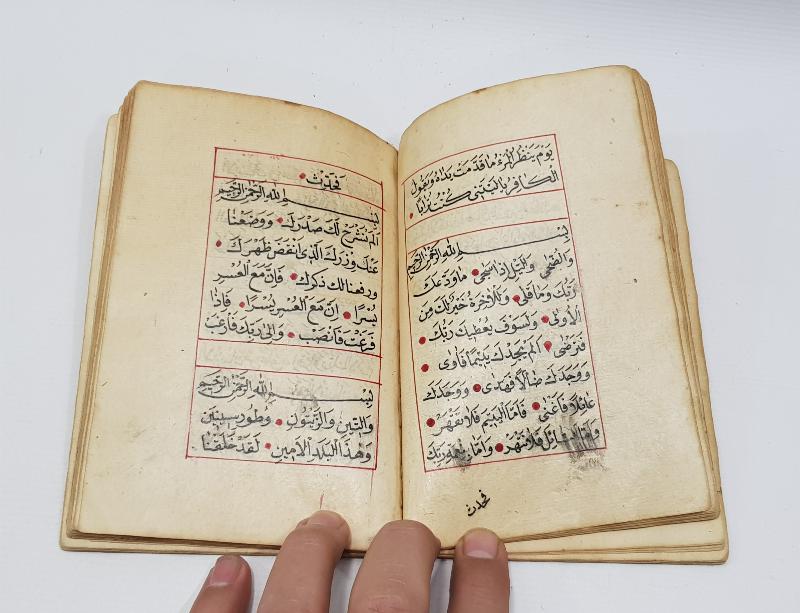 يَوْمَ يَنْظُرُ الْمَرْءُ مَا قَدَّمَتْ يَدَاهُ وَيَقُولُ
الْكَافِرُ يَا لَيْتَنِي كُنْتُ تُرَابًا
بِسْمِ اللهِ الرَّحْمٰنِ الرَّحِيمِ
وَالضُّحَى وَاللَّيْلِ إِذَا سَجَى مَا وَدَّعَكَ
رَبُّكَ وَمَا قَلَى وَلَلْآخِرَةُ خَيْرٌ لَكَ مِنَ
الْأُولَى وَلَسَوْفَ يُعْطِيكَ رَبُّكَ
فَتَرْضَى أَلَمْ يَجِدْكَ يَتِيمًا فَآوَى
وَوَجَدَكَ ضَالًّا فَهَدَى وَوَجَدَكَ
عَائِلًا فَأَغْنَى فَأَمَّا الْيَتِيمَ فَلَا تَقْهَرْ
وَأَمَّا السَّائِلَ فَلَا تَنْهَرْ وَأَمَّا بِنِعْمَةِ رَبِّكَ
فحدث
فَحَدِّثْ
بِسْمِ اللهِ الرَّحْمٰنِ الرَّحِيمِ
أَلَمْ نَشْرَحْ لَكَ صَدْرَكَ وَوَضَعْنَا
عَنْكَ وِزْرَكَ الَّذِي أَنْقَضَ ظَهْرَكَ
وَرَفَعْنَا لَكَ ذِكْرَكَ فَإِنَّ مَعَ الْعُسْرِ
يُسْرًا إِنَّ مَعَ الْعُسْرِ يُسْرًا فَإِذَا
فَرَغْتَ فَانْصَبْ وَإِلَى رَبِّكَ فَارْغَبْ
بِسْمِ اللهِ الرَّحْمٰنِ الرَّحِيمِ
وَالتِّينِ وَالزَّيْتُونِ وَطُورِ سِينِينَ
وَهَذَا الْبَلَدِ الْأَمِينِ لَقَدْ خَلَقْنَا